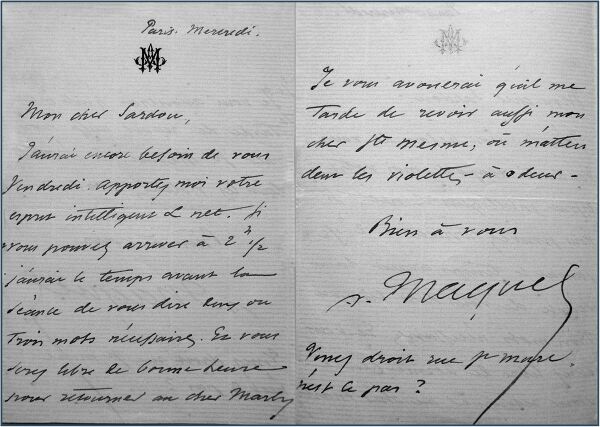 Paris. Mercredi.
Mon cher Sardou,
J'aurai encore besoin de vous
Vendredi. Apportez moi votre
esprit intelligent & net. Si
vous pouvez arriver à 2 h 1/2
j'aurai le temps avant la
séance de vous dire deux ou
trois mots nécessaires. Et vous
serez libre de bonne heure
pour retourner au cher Marly
Je vous avouerai qu'il me
tarde de revoir aussi mon
cher Ste Mesme, où m'atten
dent les violettes à odeur -
Bien à vous
A. Maquet
Venez droit rue
n'est ce pas ?